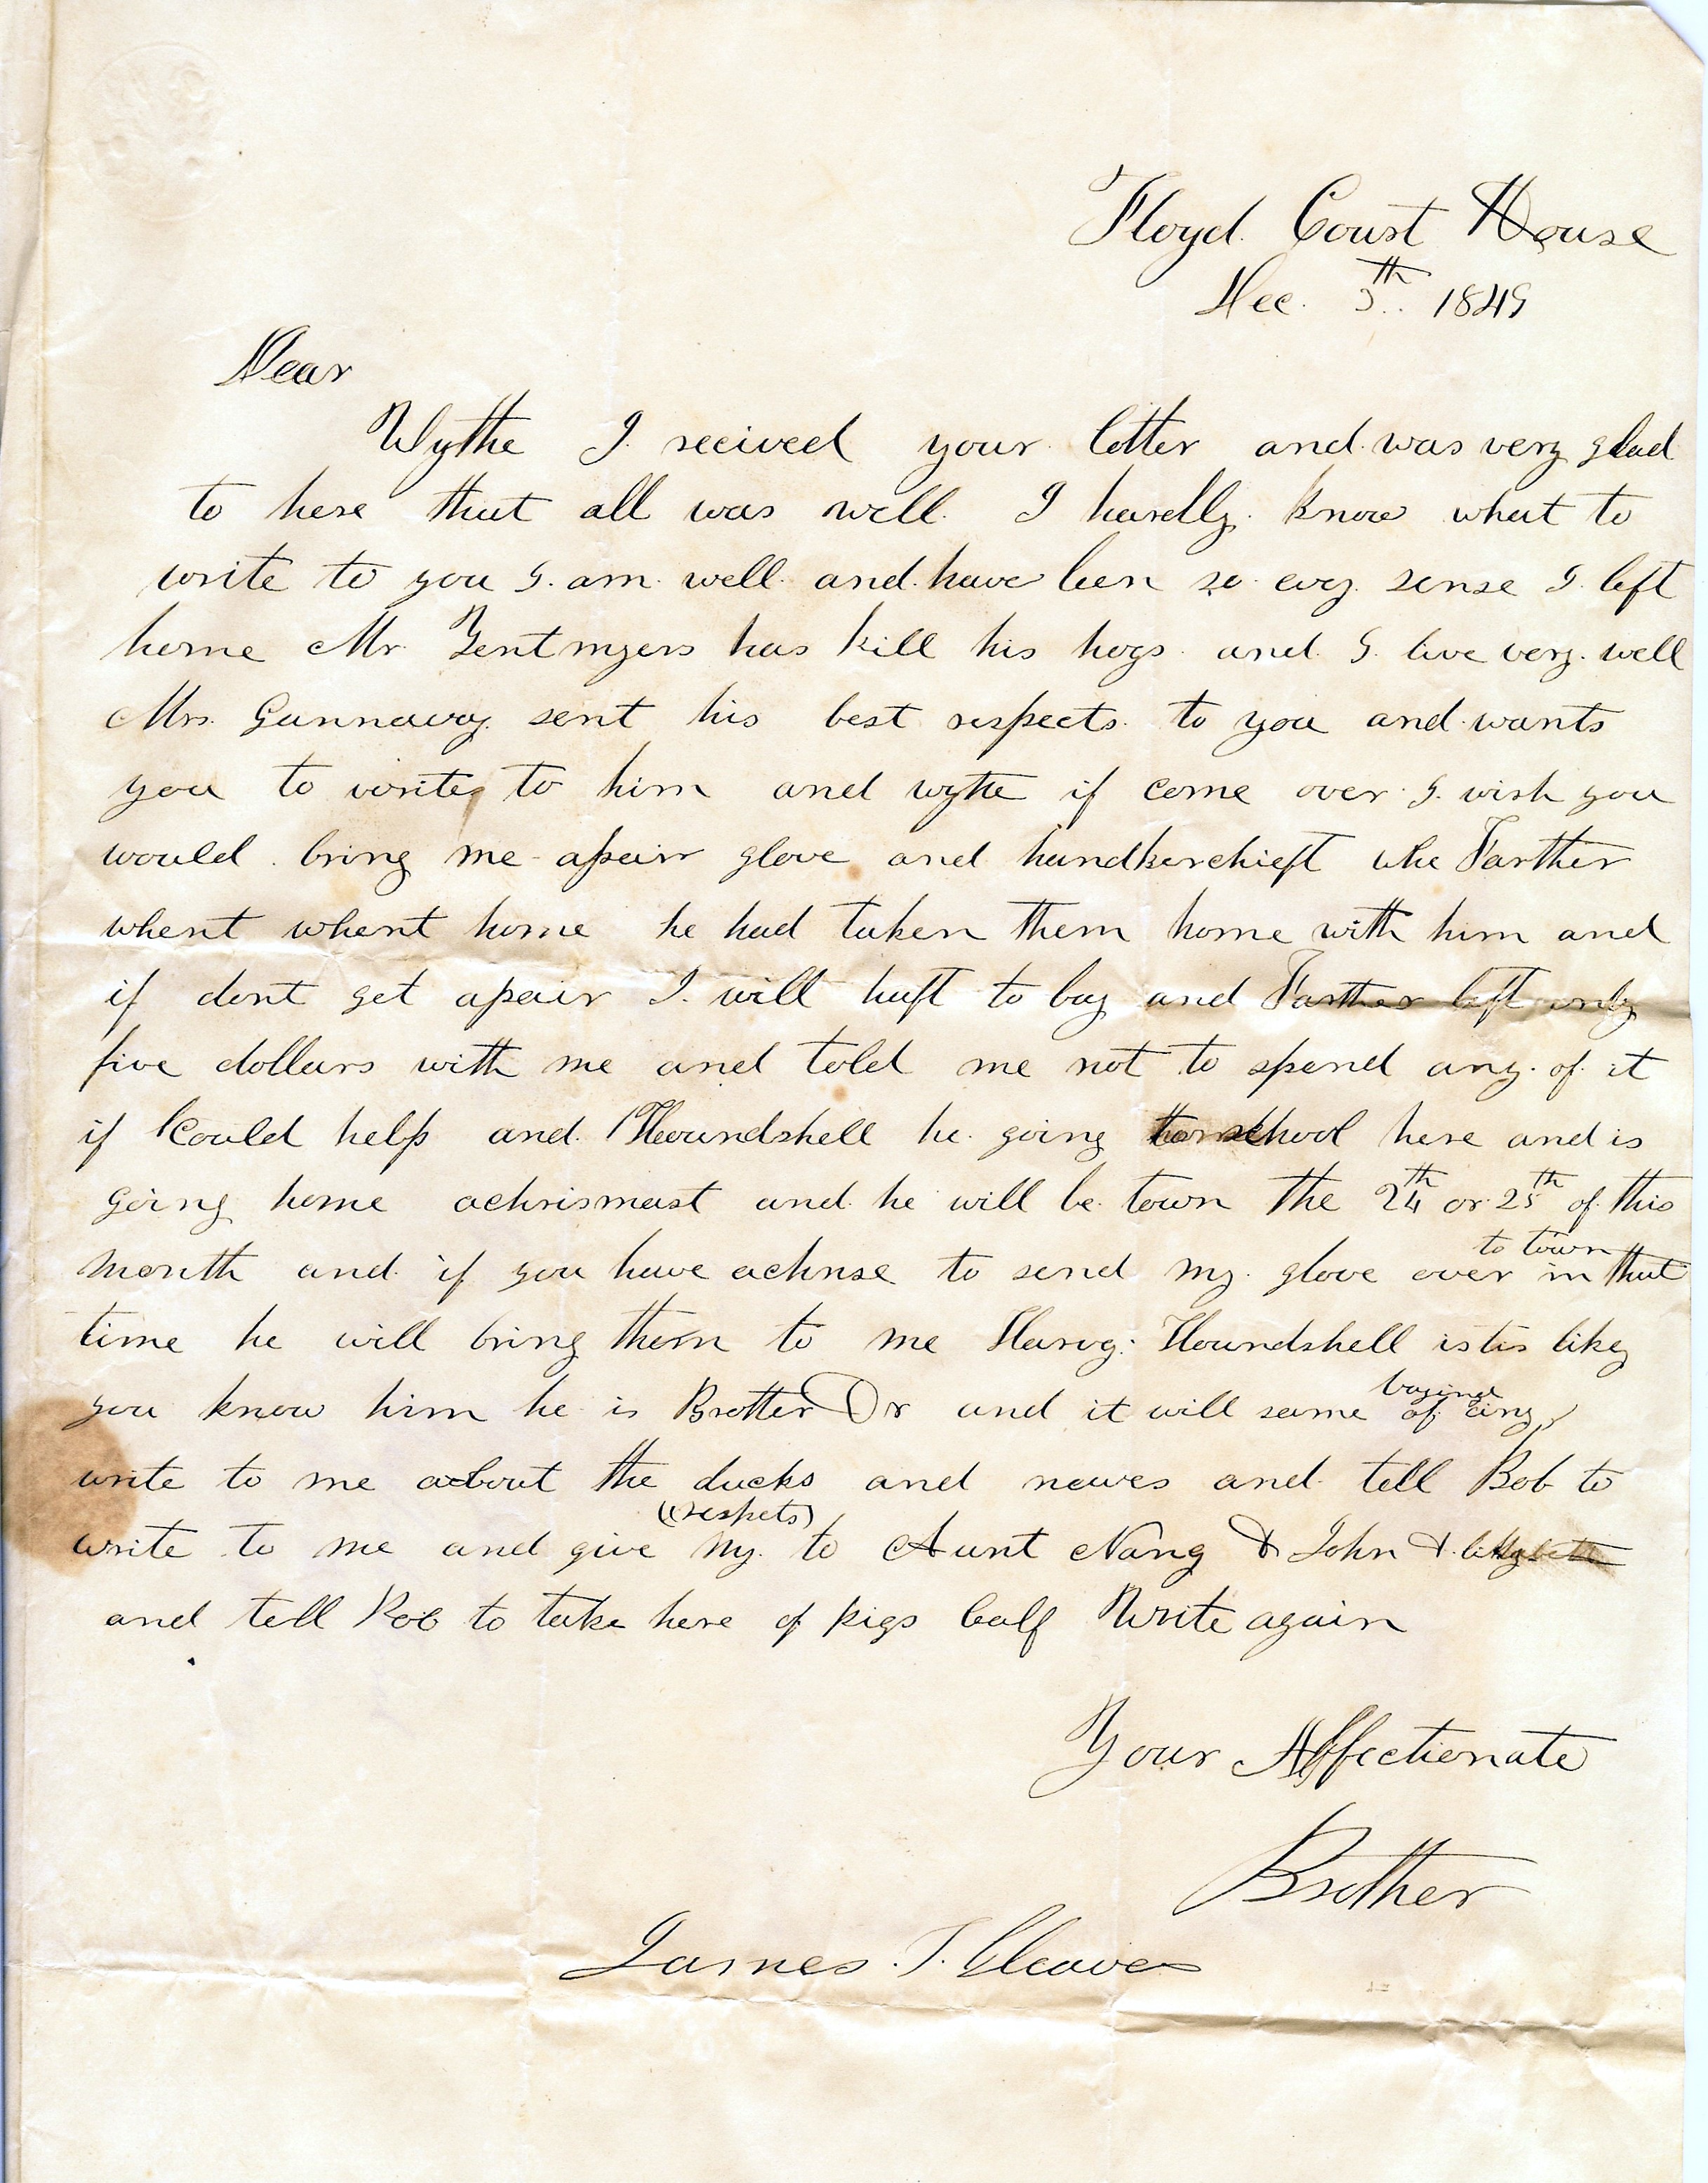 Floyd Court House
Dec. 5th 1849
Dear
Wythe I reeived your letter and was very glad
to here that all was well I hardly know what to
write to you I am well and have ben so evry sense I left
home Mr Yentmyers has kill his hogs and I live very well
Mrs. Gannaway sent his best respects to you and wants
you to write to him and wythe if come over I wish you
would bring me apair glove and handkerchieft whe Farther
whent whent home he had taken them home with him and
if dont get apair I will haft to buy and Farther left only
five dollars with me and told me not to spend any of it
if Could help and Houndshell he going to school here and is
going home achrismast and he will be town the 24th or 25th of this
month and if you have achnse to send my glove over to town in that
time he will bring them to me Harvy Houndshell is tis likey
you know him he is Brotter Dr and it will same of any
write to me about the ducks and newes and tell Bob to
write to me and give my (respets) to Aunt Nancy & John &
and tell Rob to take here of pigs calf Write again
Your Affectionate
Brother
James T. Cleaves